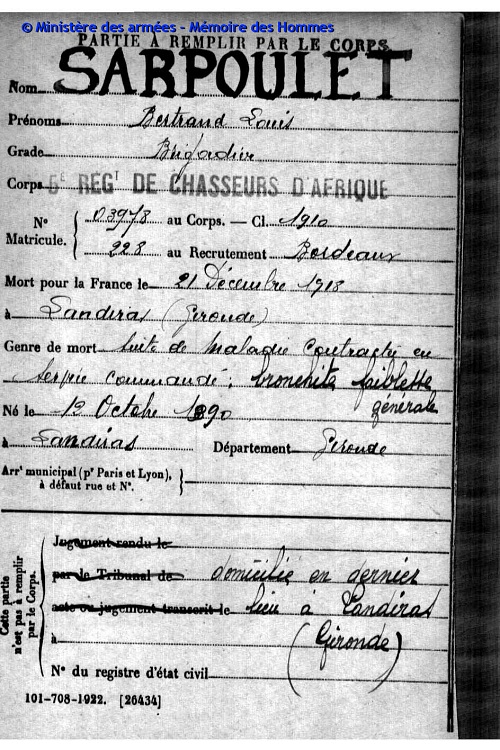 © Ministère des armées - Mémoire des Hommes
PARTIE À REMPLIR PAR LE CORPS.
Nom SARPOULET
Prénoms Bertrand Louis
Grade Brigadier
Corps 5e REGt DE CHASSEURS D'AFRIQUE
No Matricule. { 03978 au Corps. — Cl. 1910
228 au Recrutement Bordeaux
Mort pour la France le 21 Décembre 1918
à Landiras (Gironde)
Genre de mort suite de maladie contractée en
service commandé ; bronchite faiblesse
générale
Né le 12 Octobre 1890
à Landiras Département Gironde
Arrt municipal (pr Paris et Lyon),
à défaut rue et No.
Cette partie n'est pas à remplir par le Corps.
Jugement rendu le
par le Tribunal de domicilié en dernier
acte ou jugement transcrit le lieu à Landiras
à (Gironde)
No du registre d'état civil
101-708-1922. [26434]